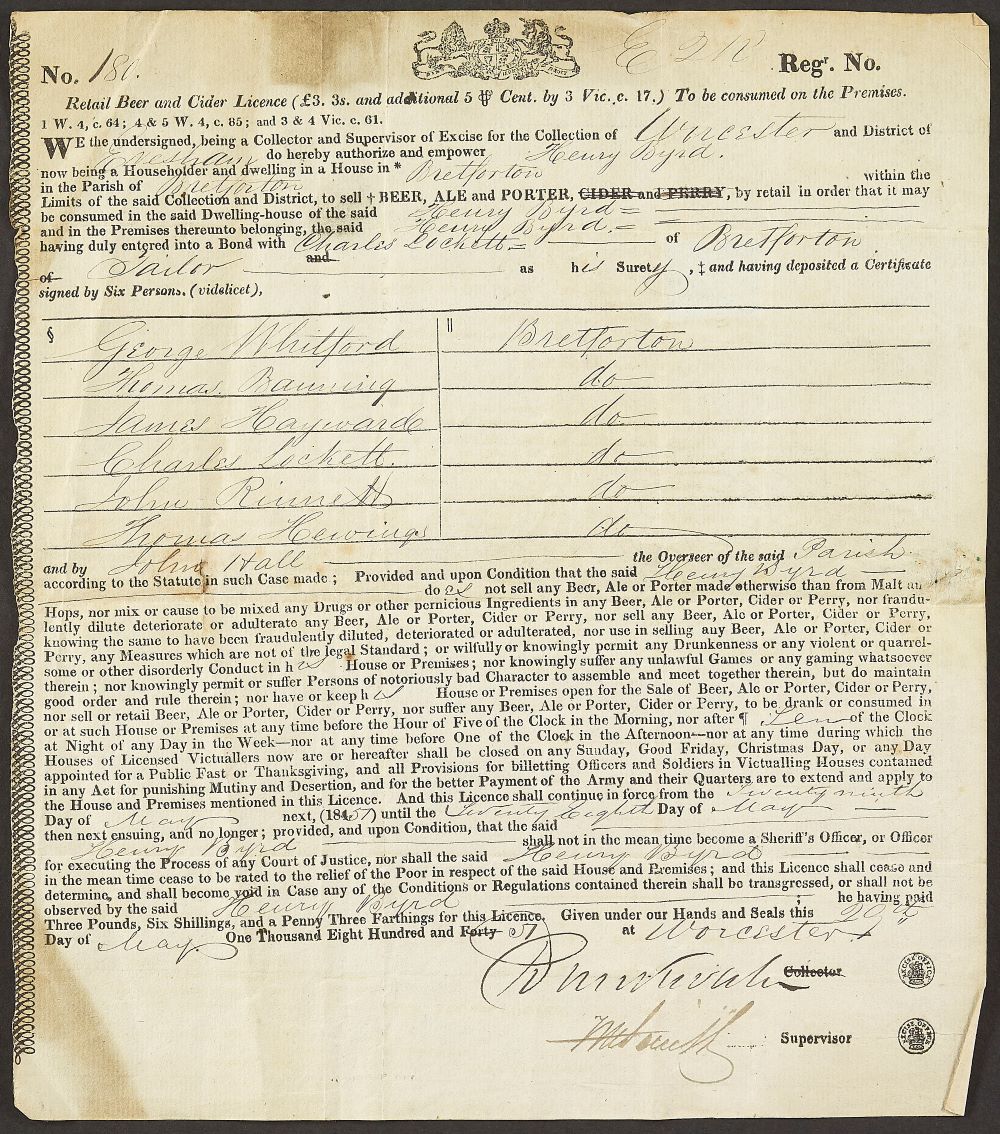 No. 180. Regr. No.
Retail Beer and Cider Licence (£3. 3s. and additional 5 ⅌ Cent. by 3 Vic. c. 17.) To be consumed on the Premises.
1 W. 4, c. 64; 4 & 5 W. 4, c. 85; and 3 & 4 Vic. c. 61.
WE the undersigned, being a Collector and Supervisor of Excise for the Collection of Worcester and District of
Evesham do hereby authorize and empower Henry Byrd.
now being a Householder and dwelling in a House in * Bretforton
in the Parish of Bretforton within the
Limits of the said Collection and District, to sell † BEER, ALE and PORTER, CIDER and PERRY, by retail in order that it may
be consumed in the said Dwelling-house of the said Henry Byrd
and in the Premises thereunto belonging, the said Henry Byrd.
having duly entered into a Bond with Charles Lockett of Bretforton
and
of Tailor as his Surety, ‡ and having deposited a Certificate
signed by Six Persons. (videlicet),
§ George Whitford || Bretforton
Thomas Banning do
James Hayward do
Charles Lockett. do
John Rimett do
Thomas Hewings do
and by John Hall the Overseer of the said Parish
according to the Statute in such Case made; Provided and upon Condition that the said Henry Byrd
does not sell any Beer, Ale or Porter made otherwise than from Malt an
Hops, nor mix or cause to be mixed any Drugs or other pernicious Ingredients in any Beer, Ale or Porter, Cider or Perry, nor fraudu-
lently dilute deteriorate or adulterate any Beer, Ale or Porter, Cider or Perry, nor sell any Beer, Ale or Porter, Cider or Perry,
knowing the same to have been fraudulently diluted, deteriorated or adulterated, nor use in selling any Beer, Ale or Porter, Cider or
Perry, any Measures which are not of the legal Standard; or wilfully or knowingly permit any Drunkenness or any violent or quarrel-
some or other disorderly Conduct in his House or Premises; nor knowingly suffer any unlawful Games or any gaming whatsoever
therein; nor knowingly permit or suffer Persons of notoriously bad Character to assemble and meet together therein, but do maintain
good order and rule therein; nor have or keep his House or Premises open for the Sale of Beer, Ale or Porter, Cider or Perry,
nor sell or retail Beer, Ale or Porter, Cider or Perry, nor suffer any Beer, Ale or Porter, Cider or Perry, to be drank or consumed in
or at such House or Premises at any time before the Hour of Five of the Clock in the Morning, nor after ¶ Ten of the Clock
at Night of any Day in the Week—nor at any time before One of the Clock in the Afternoon—nor at any time during which the
Houses of Licensed Victuallers now are or hereafter shall be closed on any Sunday, Good Friday, Christmas Day, or any Day
appointed for a Public Fast or Thanksgiving, and all Provisions for billetting Officers and Soldiers in Victualling Houses contained
in any Act for punishing Mutiny and Desertion, and for the better Payment of the Army and their Quarters are to extend and apply to
the House and Premises mentioned in this Licence. And this Licence shall continue in force from the Twenty ninth
Day of May next, (1851) until the Twenty Eighth Day of May
then next ensuing, and no longer; provided, and upon Condition, that the said
Henry Byrd shall not in the mean time become a Sheriff's Officer, or Officer
for executing the Process of any Court of Justice, nor shall the said Henry Byrd
in the mean time cease to be rated to the relief of the Poor in respect of the said House and Premises; and this Licence shall cease and
determine, and shall become void in Case any of the Conditions or Regulations contained therein shall be transgressed, or shall not be
observed by the said Henry Byrd; he having paid
Three Pounds, Six Shillings, and a Penny Three Farthings for this Licence. Given under our Hands and Seals this 29th
Day of May. One Thousand Eight Hundred and Forty 51 at Worcester
Collector
Supervisor
EXCISE OFFICE
EXCISE OFFICE